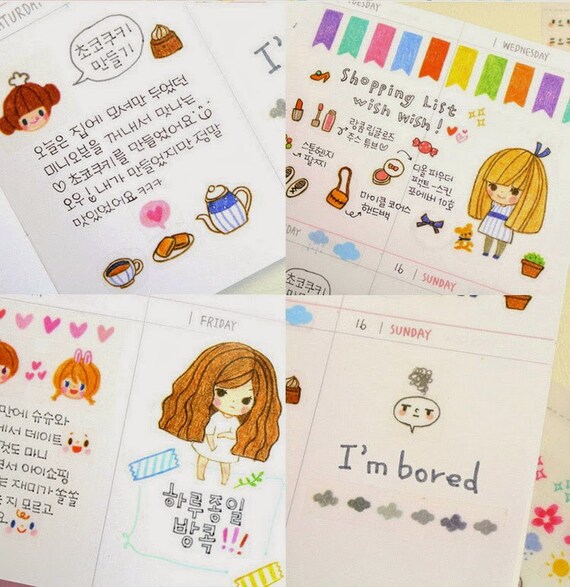 SATURDAY
초코쿠키
만들기
오늘은 집에 모셔만 두었던
미니오븐을 꺼내서 만나는
♡초코쿠키를 만들었어요
오우! 내가 만들었지만 정말
맛있었어요 ㅋㅋㅋ
I'
WEDNESDAY
Shopping List
wish wish!
랑콤 립글로즈
주스 튜브♡
스톤헨지
팔찌
디올 파우더
팩트-스킨
포에버 10호
마이클 코어스
핸드백
초코쿠키
16 SUNDAY
FRIDAY
만에 슈슈와
에서 데이트
것도 마니
면서 아이쇼핑
는 재미가 쏠쏠
는지 모르고
요
하루종일
방콕!!!
16 SUNDAY
I'm bored